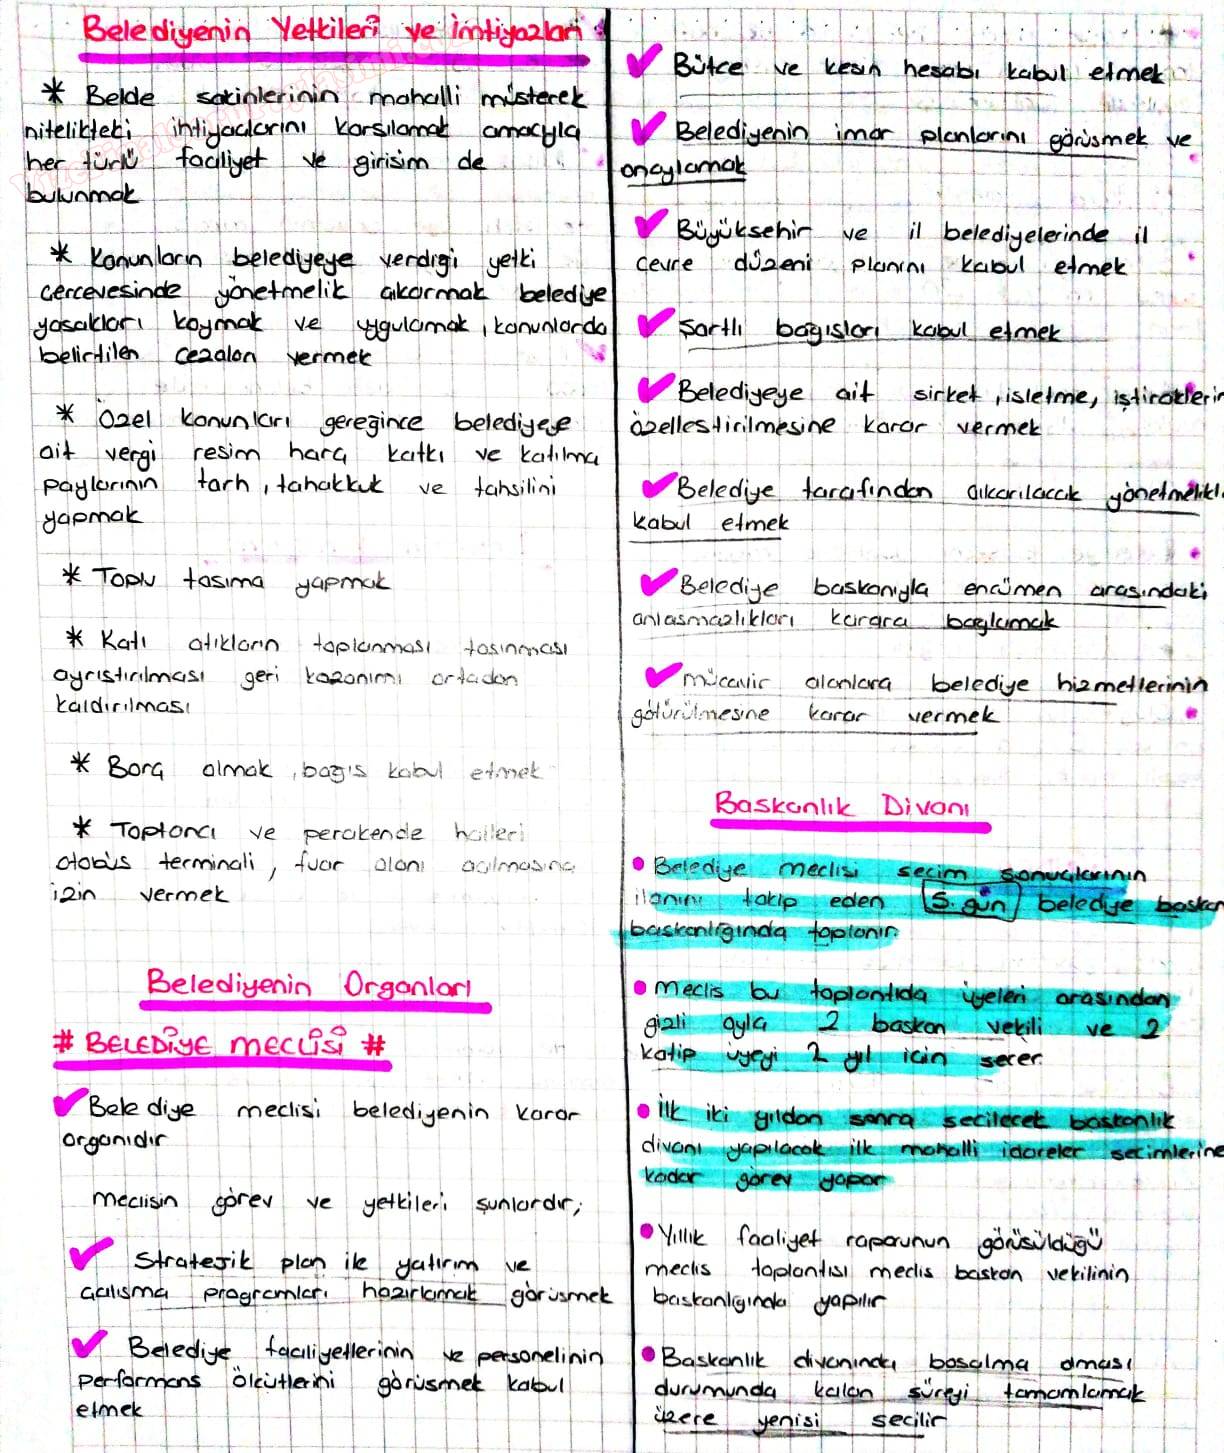 Belediyenin Yetkileri ve İmtiyazları
* Belde sakinlerinin mahalli müsterek
nitelikteki ihtiyaclarını karsılamak amacıyla
her türlü faaliyet ve girisim de
bulunmak
* Kanunların belediyeye verdigi yetki
cercevesinde yönetmelik cıkarmak belediye
yasakları koymak ve uygulamak, kanunlarda
belirtilen cezaları vermek
* Özel kanunları gereğince belediyeye
ait vergi resim harç katkı ve katılma
paylarının tarh, tahakkuk ve tahsilini
yapmak
* Toplu tasıma yapmak
* Katı atıkların toplanması tasınması
ayrıstırılması geri kazanımı ortadan
kaldırılması
* Borç almak, bagıs kabul etmek
* Toptancı ve perakende halleri
otobüs terminali, fuar alanı acılmasına
izin vermek
Belediyenin Organları
# BELEDİYE MECLİSİ #
✓ Belediye meclisi belediyenin karar
organıdır
meclisin görev ve yetkileri şunlardır;
✓ Stratejik plan ile yatırım ve
calısma programları hazırlamak görüsmek
✓ Belediye faaliyetlerinin ve personelinin
performans ölcütlerini görüsmek kabul
etmek
✓ Bütce ve kesin hesabı kabul etmek
✓ Belediyenin imar planlarını görüsmek ve
onaylamak
✓ Büyüksehir ve il belediyelerinde il
cevre düzeni planını kabul etmek
✓ Sartlı bagısları kabul etmek
✓ Belediyeye ait sirket, isletme, iştiraklerin
özellestirilmesine karar vermek
✓ Belediye tarafından cıkarılacak yönetmelikl
kabul etmek
✓ Belediye baskanıyla encümen arasındaki
anlasmazlıkları karara baglamak
✓ mücavir alanlara belediye hizmetlerinin
götürülmesine karar vermek
Baskanlık Divanı
• Belediye meclisi secim sonuclarının
ilanını takip eden 5. gün belediye baskan
baskanlıgında toplanır
• Meclis bu toplantıda üyeleri arasından
gizli oyla 2 baskan vekili ve 2
katip üyeyi 2 yıl icin secer.
• İlk iki yıldan sonra secilecek baskanlık
divanı yapılacak ilk mahalli idareler secimlerine
kadar görev yapar
• Yıllık faaliyet raporunun görüsüldüğü
meclis toplantısı meclis baskan vekilinin
baskanlıgında yapılır
• Baskanlık divanında bosalma olması
durumunda kalan süreyi tamamlamak
üzere yenisi secilir